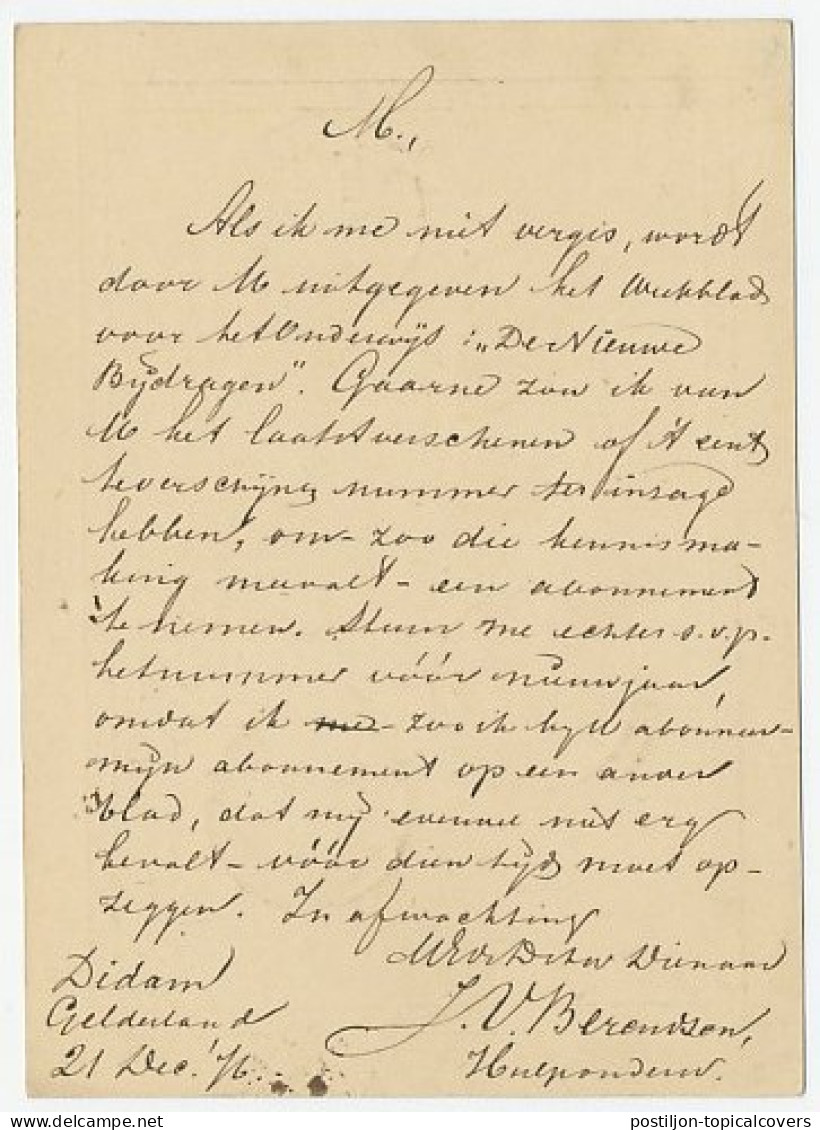 M.,
Als ik me niet vergis, wordt
door M uitgegeven het Weekblad
voor het Onderwijs: „De Nieuwe
Bijdragen". Gaarne zou ik van
M het laatstverschenen of 't eerst
teverschijnen nummer ter inzage
hebben, om - zoo die kennisma-
king meevalt - een abonnement
te nemen. Stuur me echter s.v.p.
het nummer vóór nieuwjaar,
omdat ik me - zoo ik bij U abonneer -
mijn abonnement op een ander
blad, dat mij evenwel niet erg
bevalt - vóór dien tijd moet op-
zeggen. In afwachting
Dienaar
Didam
Gelderland
21 Dec. '76.
J. V. Berendsen,
Hulponderw.
postiljon-topicalcovers